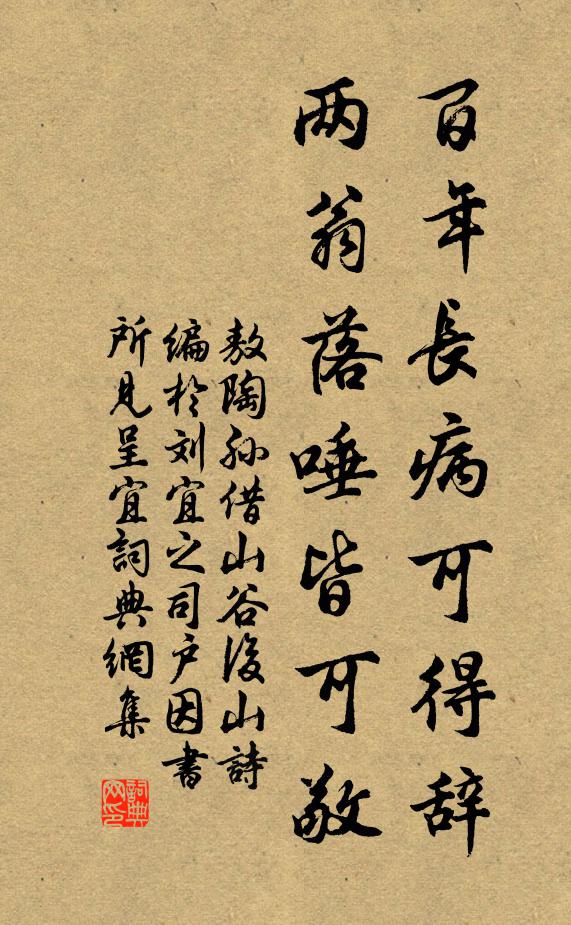 百年長病可得辞
两翁落唾皆可敬
敖陶孙借山谷後山詩
编於刘宜之司户因書
所見呈宜詞典網集
詞典网印